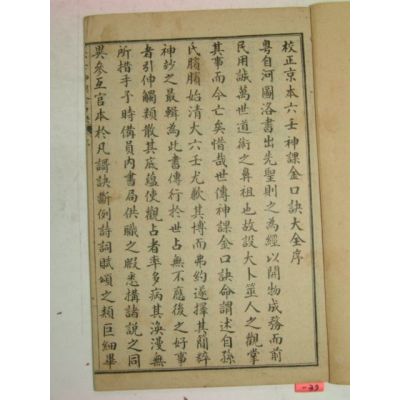 校正京本六壬神課金口訣大全序
粵自河圖洛書出先聖則之為經以開物成務而前
民用誠萬世道術之鼻祖也故設大卜簭人之觀掌
其事而今亡矣惜哉世傳神課金口訣命謂述自孫
氏臏臏始清大六壬尤歎其博而弗約遂擇其簡粹
神妙之最輯為此書傳行於世占無不應後之好事
者引伸觸類散其底蘊使觀占者率多病其渙漫無
所措手予時備員內書局供職之暇悉搆諸說之同
異參互官本於凡謌訣斷例詩詞賦頌之類巨細畢
-29